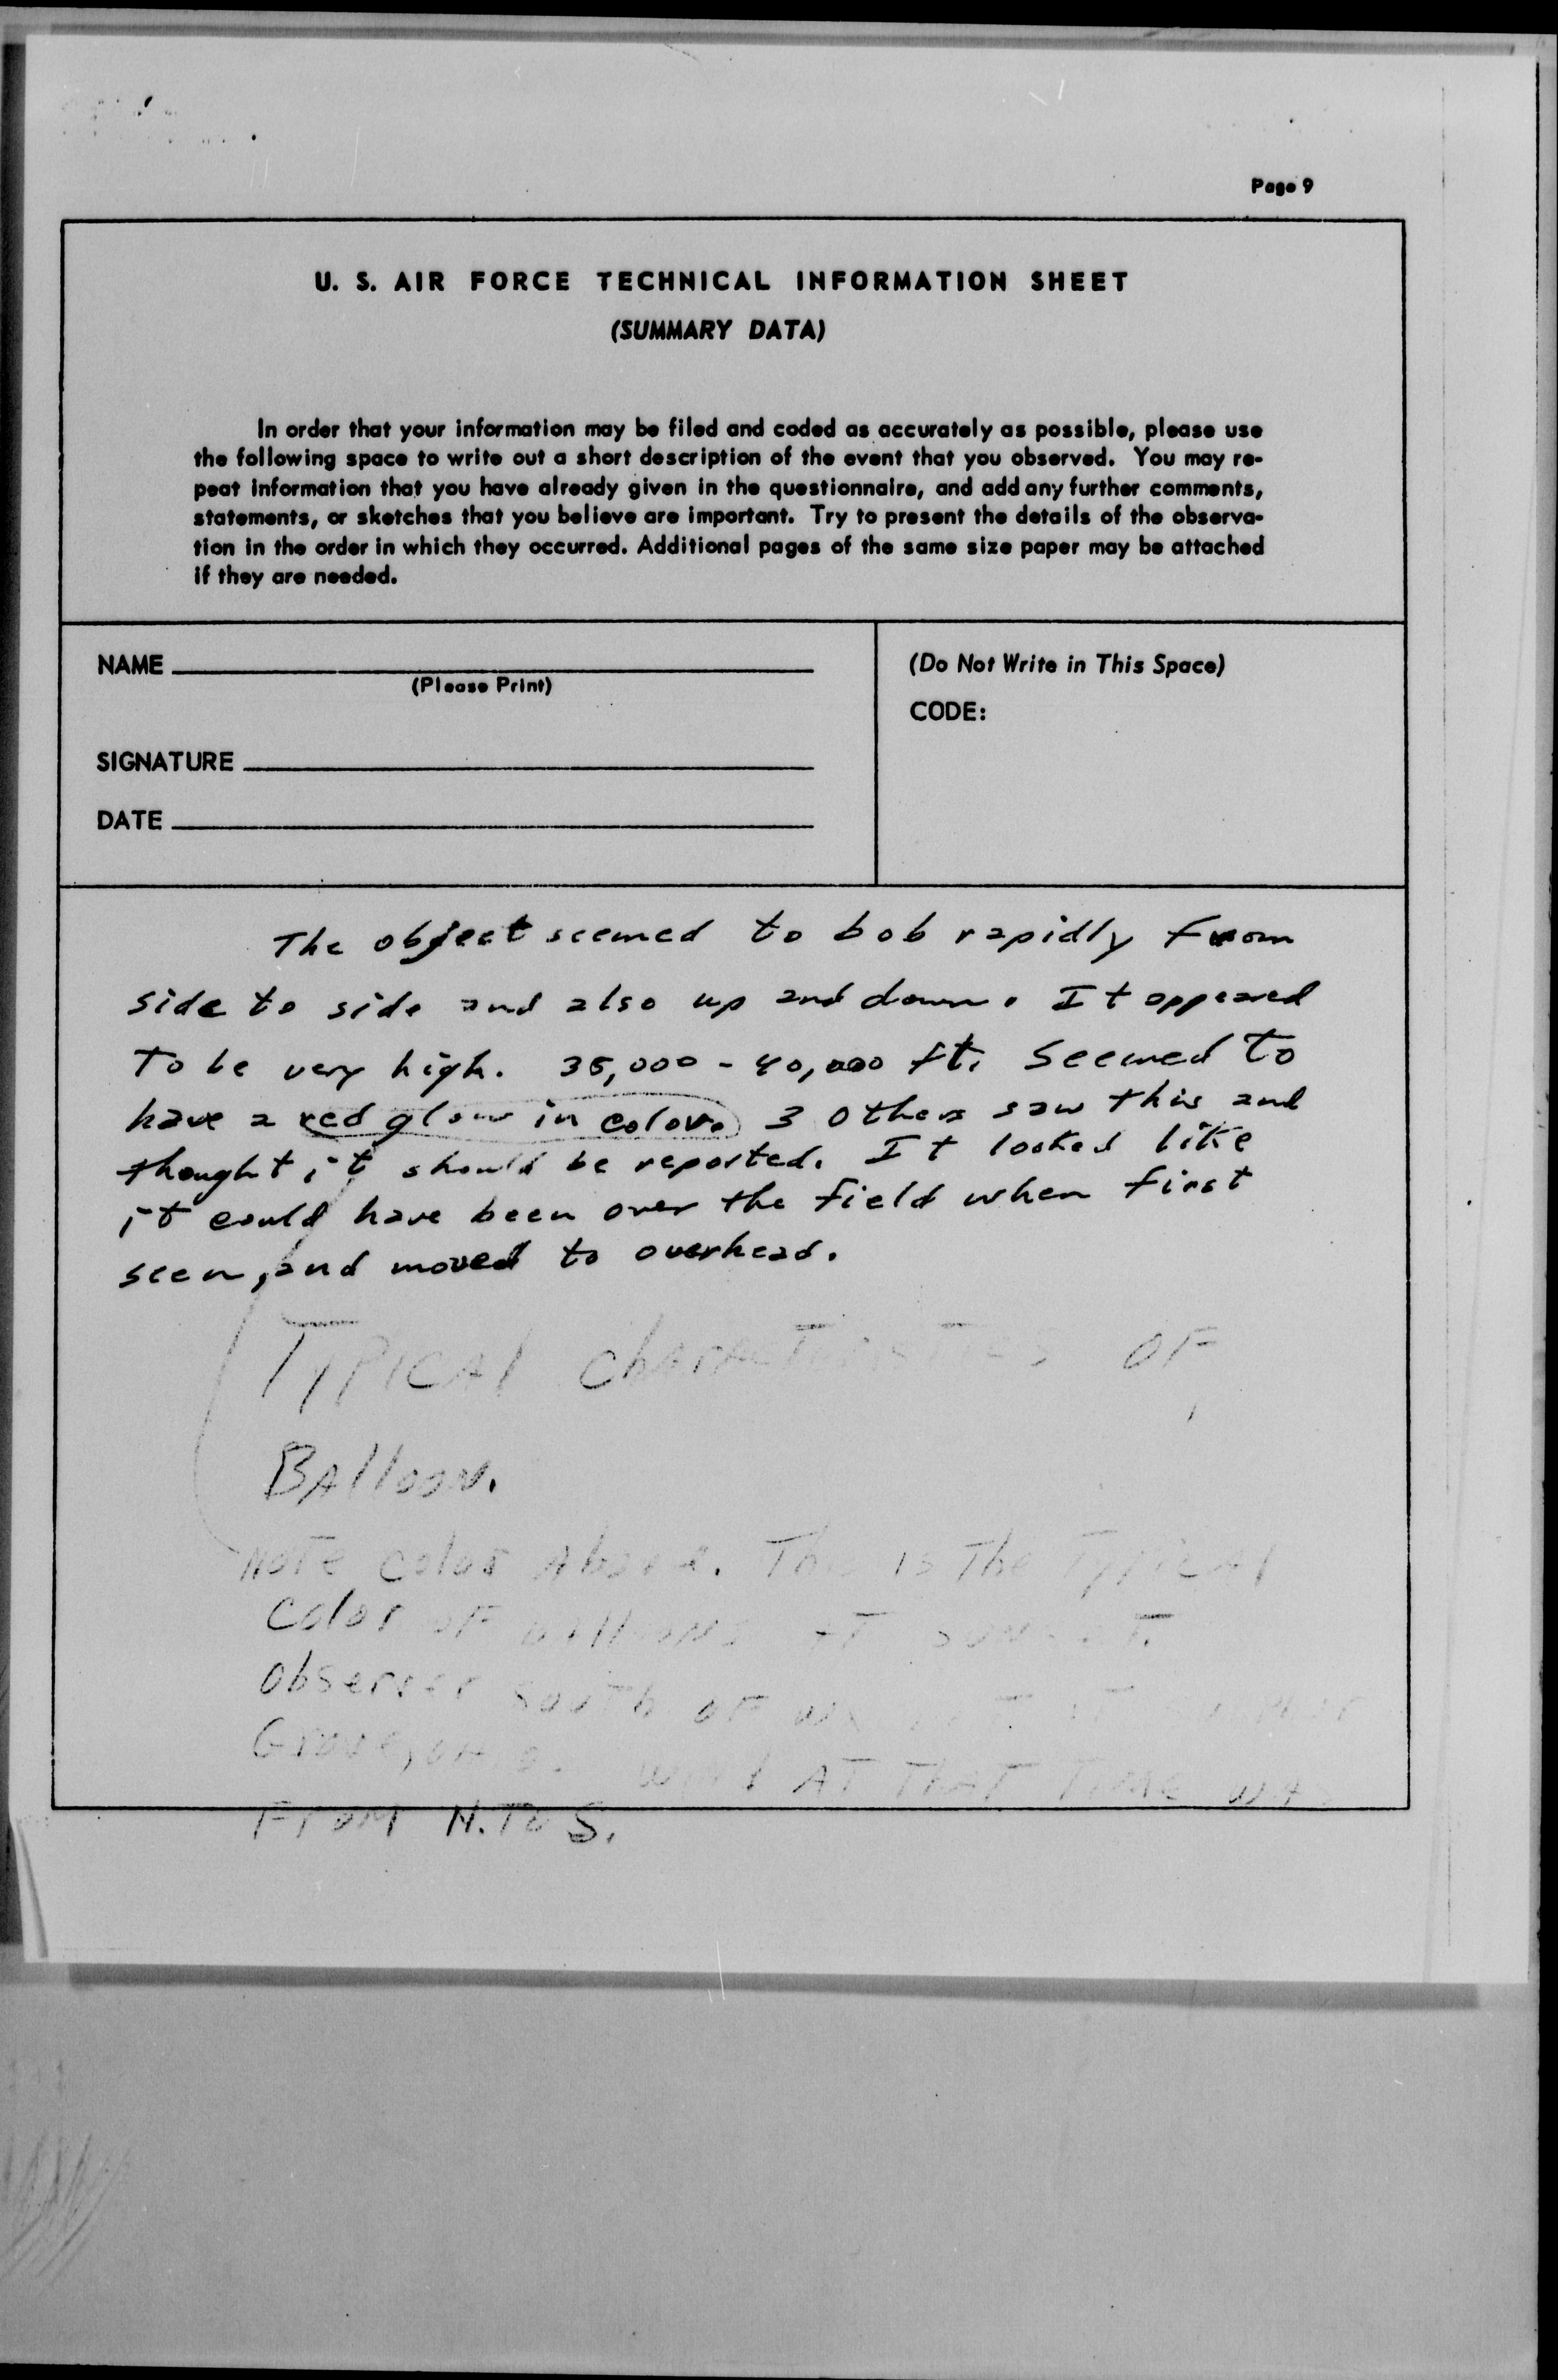 Page 9
U. S. AIR FORCE TECHNICAL INFORMATION SHEET
(SUMMARY DATA)
In order that your information may be filed and coded as accurately as possible, please use
the following space to write out a short description of the event that you observed. You may re-
peat information that you have already given in the questionnaire, and add any further comments,
statements, or sketches that you believe are important. Try to present the details of the observa-
tion in the order in which they occurred. Additional pages of the same size paper may be attached
if they are needed.
NAME
(Please Print)
SIGNATURE
DATE
(Do Not Write in This Space)
CODE:
The object seemed to bob rapidly from
side to side and also up and down. It appeared
to be very high. 35,000 - 40,000 ft. Seemed to
have a red glow in color. 3 others saw this and
thought it should be reported. It looked like
it could have been over the field when first
seen, and moved to overhead.
Typical characteristics of
Balloon.
Note color above. This is the typical
color of balloons at sunset.
Observer south of
Grove, wind at that time was
From N. to S.